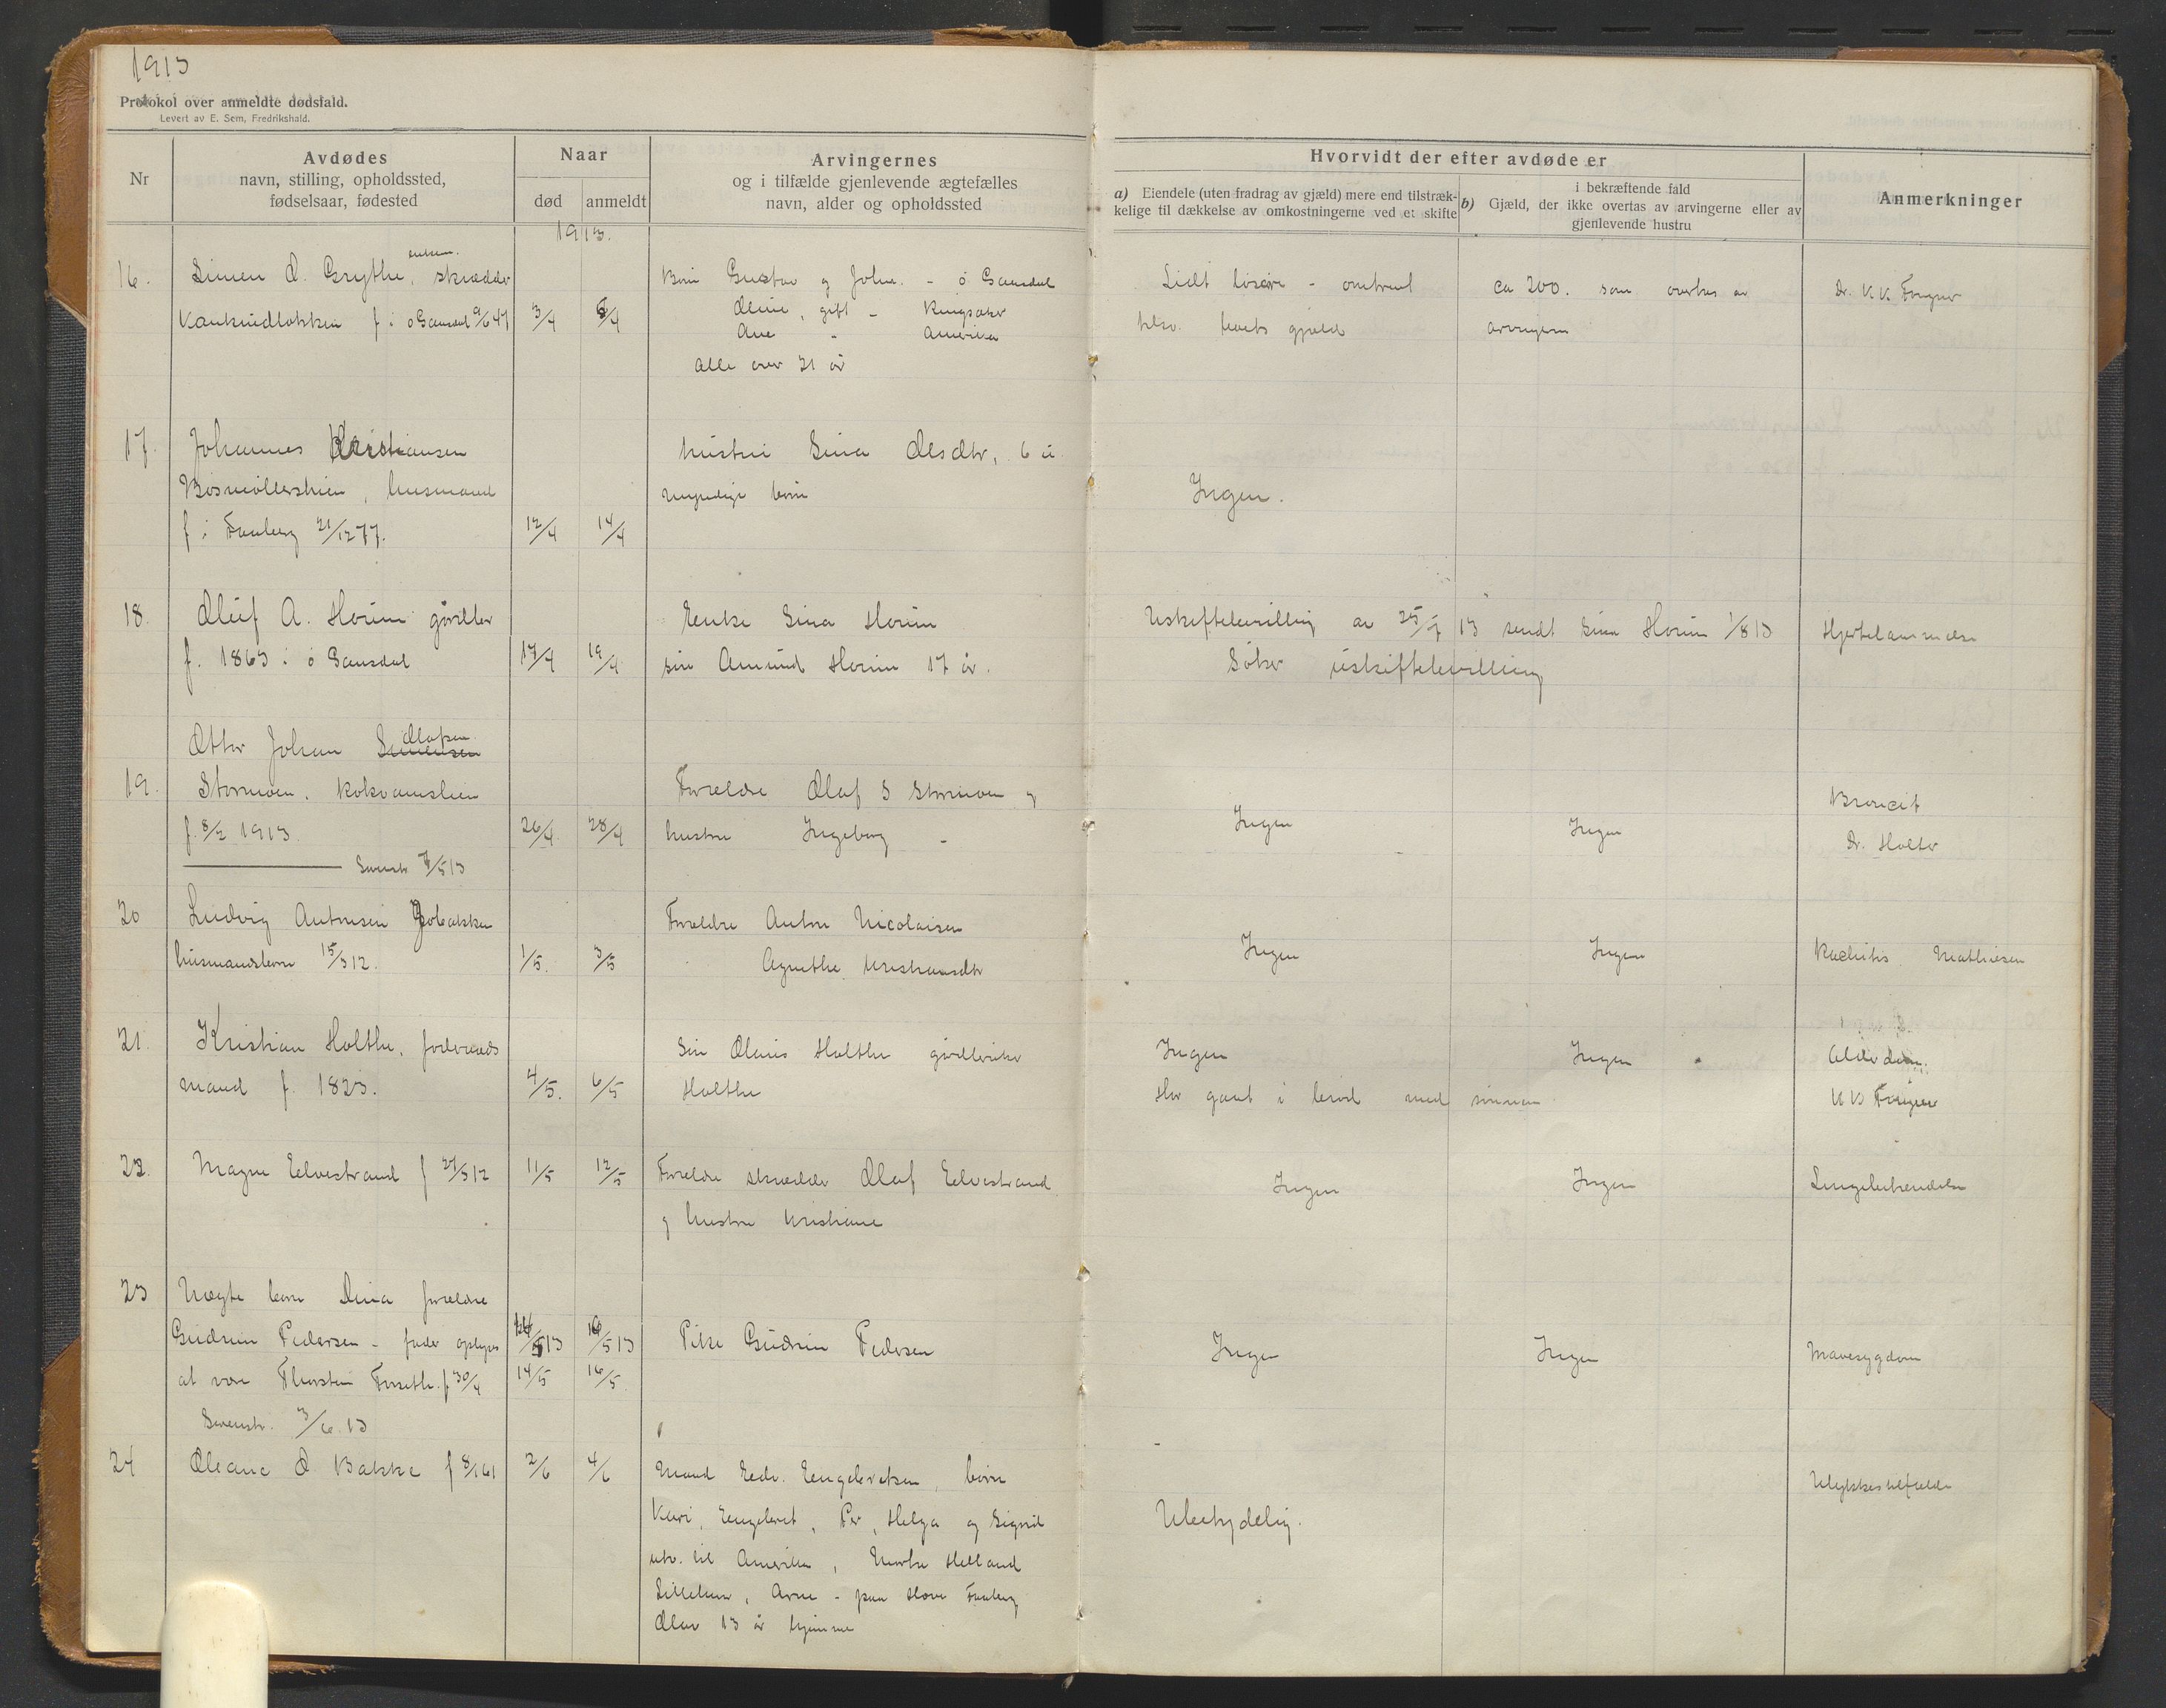 1913
Protokol over anmeldte dødsfald.
Levert av E. Sem, Fredrikshald.
Nr
Avdødes
navn, stilling, opholdssted,
fødselsaar, fødested
Naar
død
anmeldt
Arvingernes
og i tilfælde gjenlevende ægtefælles
navn, alder og opholdssted
Hvorvidt der efter avdøde er
a) Eiendele (uten fradrag av gjæld) mere end tilstræk-
kelige til dækkelse av omkostningerne ved et skifte
i bekræftende fald
b) Gjæld, der ikke overtas av arvingerne eller av
gjenlevende hustru
Anmerkninger
1913.
16. Simen O. Grythe, enkem. skrædder
f i ø Gausdal 9/6 47 3/4 5/4
Børn Gustav og Johan. - ø Gausdal
Oline, gift - Ringsaker
Ane - Amerika
Alle over 21 år
Lidt løsøre - omtrent
gjæld
ca 200. som overtas av
arvingerne
Dr. K K Frugner
17. Johannes Kristiansen
husmand
f i Faaberg 21/12 77. 12/4 14/4
hustru Sina Olsdtr, 6 u
myndige børn
Ingen.
18. Oluf A. Horum gårdbr
f. 1863 i ø Gausdal 17/4 19/4
Enke Sina Horum
søn Amund Horum 17 år.
Uskiftebevilling av 25/7 13 sendt Sina Horum 1/8 13
Søker uskiftebevilling
Hjertelammelse
19. Otter Johan Simensen Olafsen
Stormoen, Kokvamslien
f. 8/2 1913. 26/4 28/4
Forældre Olaf S Stormoen og
hustru Ingeborg -
Ingen
Ingen
Broncit
Dr. Holter
7/5 13
20 Ludvig Antonsen
husmandsbarn 15/3 12. 1/5. 3/5
Forældre Anton Nicolaisen
Agnethe Kristiansdtr
Ingen
Ingen
Rachitis Mathiesen
21. Kristian Holthe, forlevneds
mand f. 1823. 4/5. 6/5
Søn Olaus Holthe gårdbruker
Holthe
Ingen
Har gaat i brød med sønnen
Ingen
Alderdom.
K K Frugner
22. Magne Elvestrand f 27/3 12 11/5 12/5
Forældre skrædder Olaf Elvestrand
og hustru Kristiane
Ingen
Ingen
Lungebetændelse
23 Uægte barn Dina forældre
Gudrun Pedersen - fader opgives
at være Thorstein Forseth. f 30/4
14/5 13 16/5 13
14/5 16/5
Pike Gudrun Pedersen
Ingen
Ingen
Mavesygdom
3/6 13
24 Oleane O Bakke f 8/1 61 2/6 4/6
Mand Edv. Engebretsen, børn
Kari, Engebret, Per, Helga og Sigrid
utv. til Amerika, Marthe Helland
Lillehmr, Arne - paa Hove Faaberg
Olav 13 år hjemme
Ubetydelig.
Ulykkestilfælde